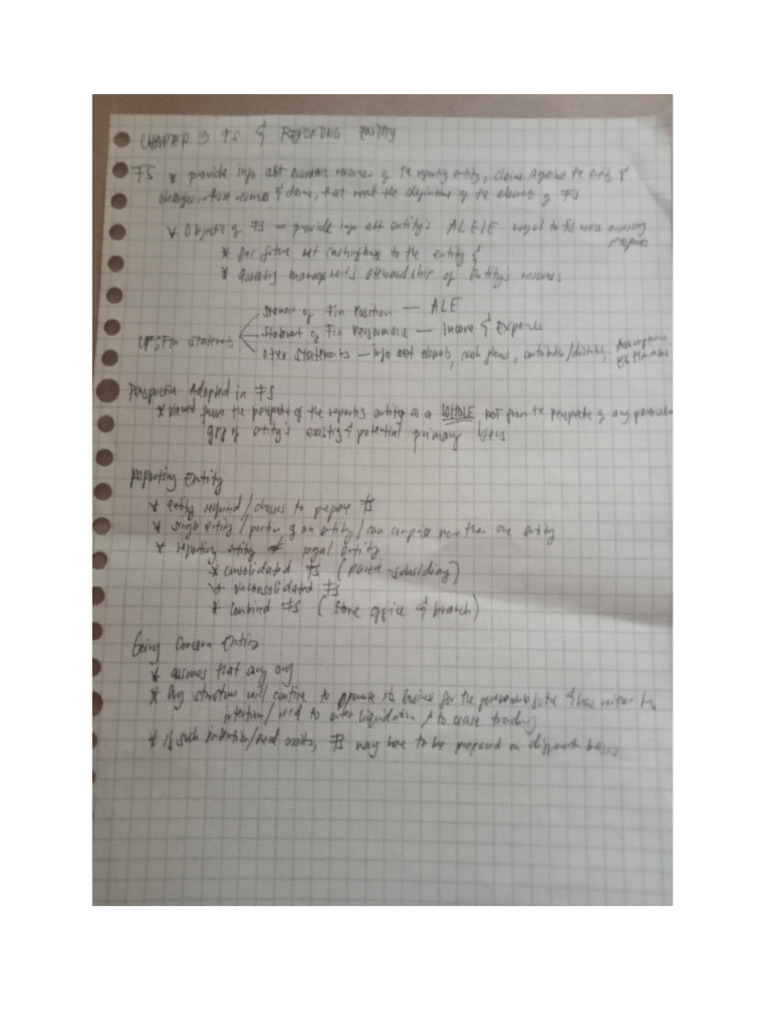 CHAPTER 3 FS & REPORTING ENTITY
FS * provide info abt economic resources of the reporting entity, claims against the entity &
changes in those resources & claims, that meet the definition of the elements of FS
* Objective of FS — provide info abt entity's ALEIE useful to FS users assessing
* for future net cash inflows to the entity &
* assessing management's stewardship of entity's resources
Statement of Fin Position — ALE
Fin Statements Statement of Fin Performance — Income & Expenses
Other Statements — info abt elements, cash flows, contributions/distributions, Assumptions
Estimates
Perspective Adopted in FS
* viewed from the perspective of the reporting entity as a WHOLE not from the perspective of any particular
grp of entity's existing & potential primary users
Reporting Entity
* entity required/chooses to prepare FS
* single entity/portion of an entity/can comprise more than one entity
* reporting entity ≠ legal entity
* consolidated FS (parent-subsidiary)
* unconsolidated FS
* combined FS (home office & branch)
Going Concern Entities
* assumes that any org
* Org structure will continue to operate its business for the foreseeable future & has neither the
intention/need to enter liquidation / to cease trading
* if such intention/need exists, FS may have to be prepared on different basis